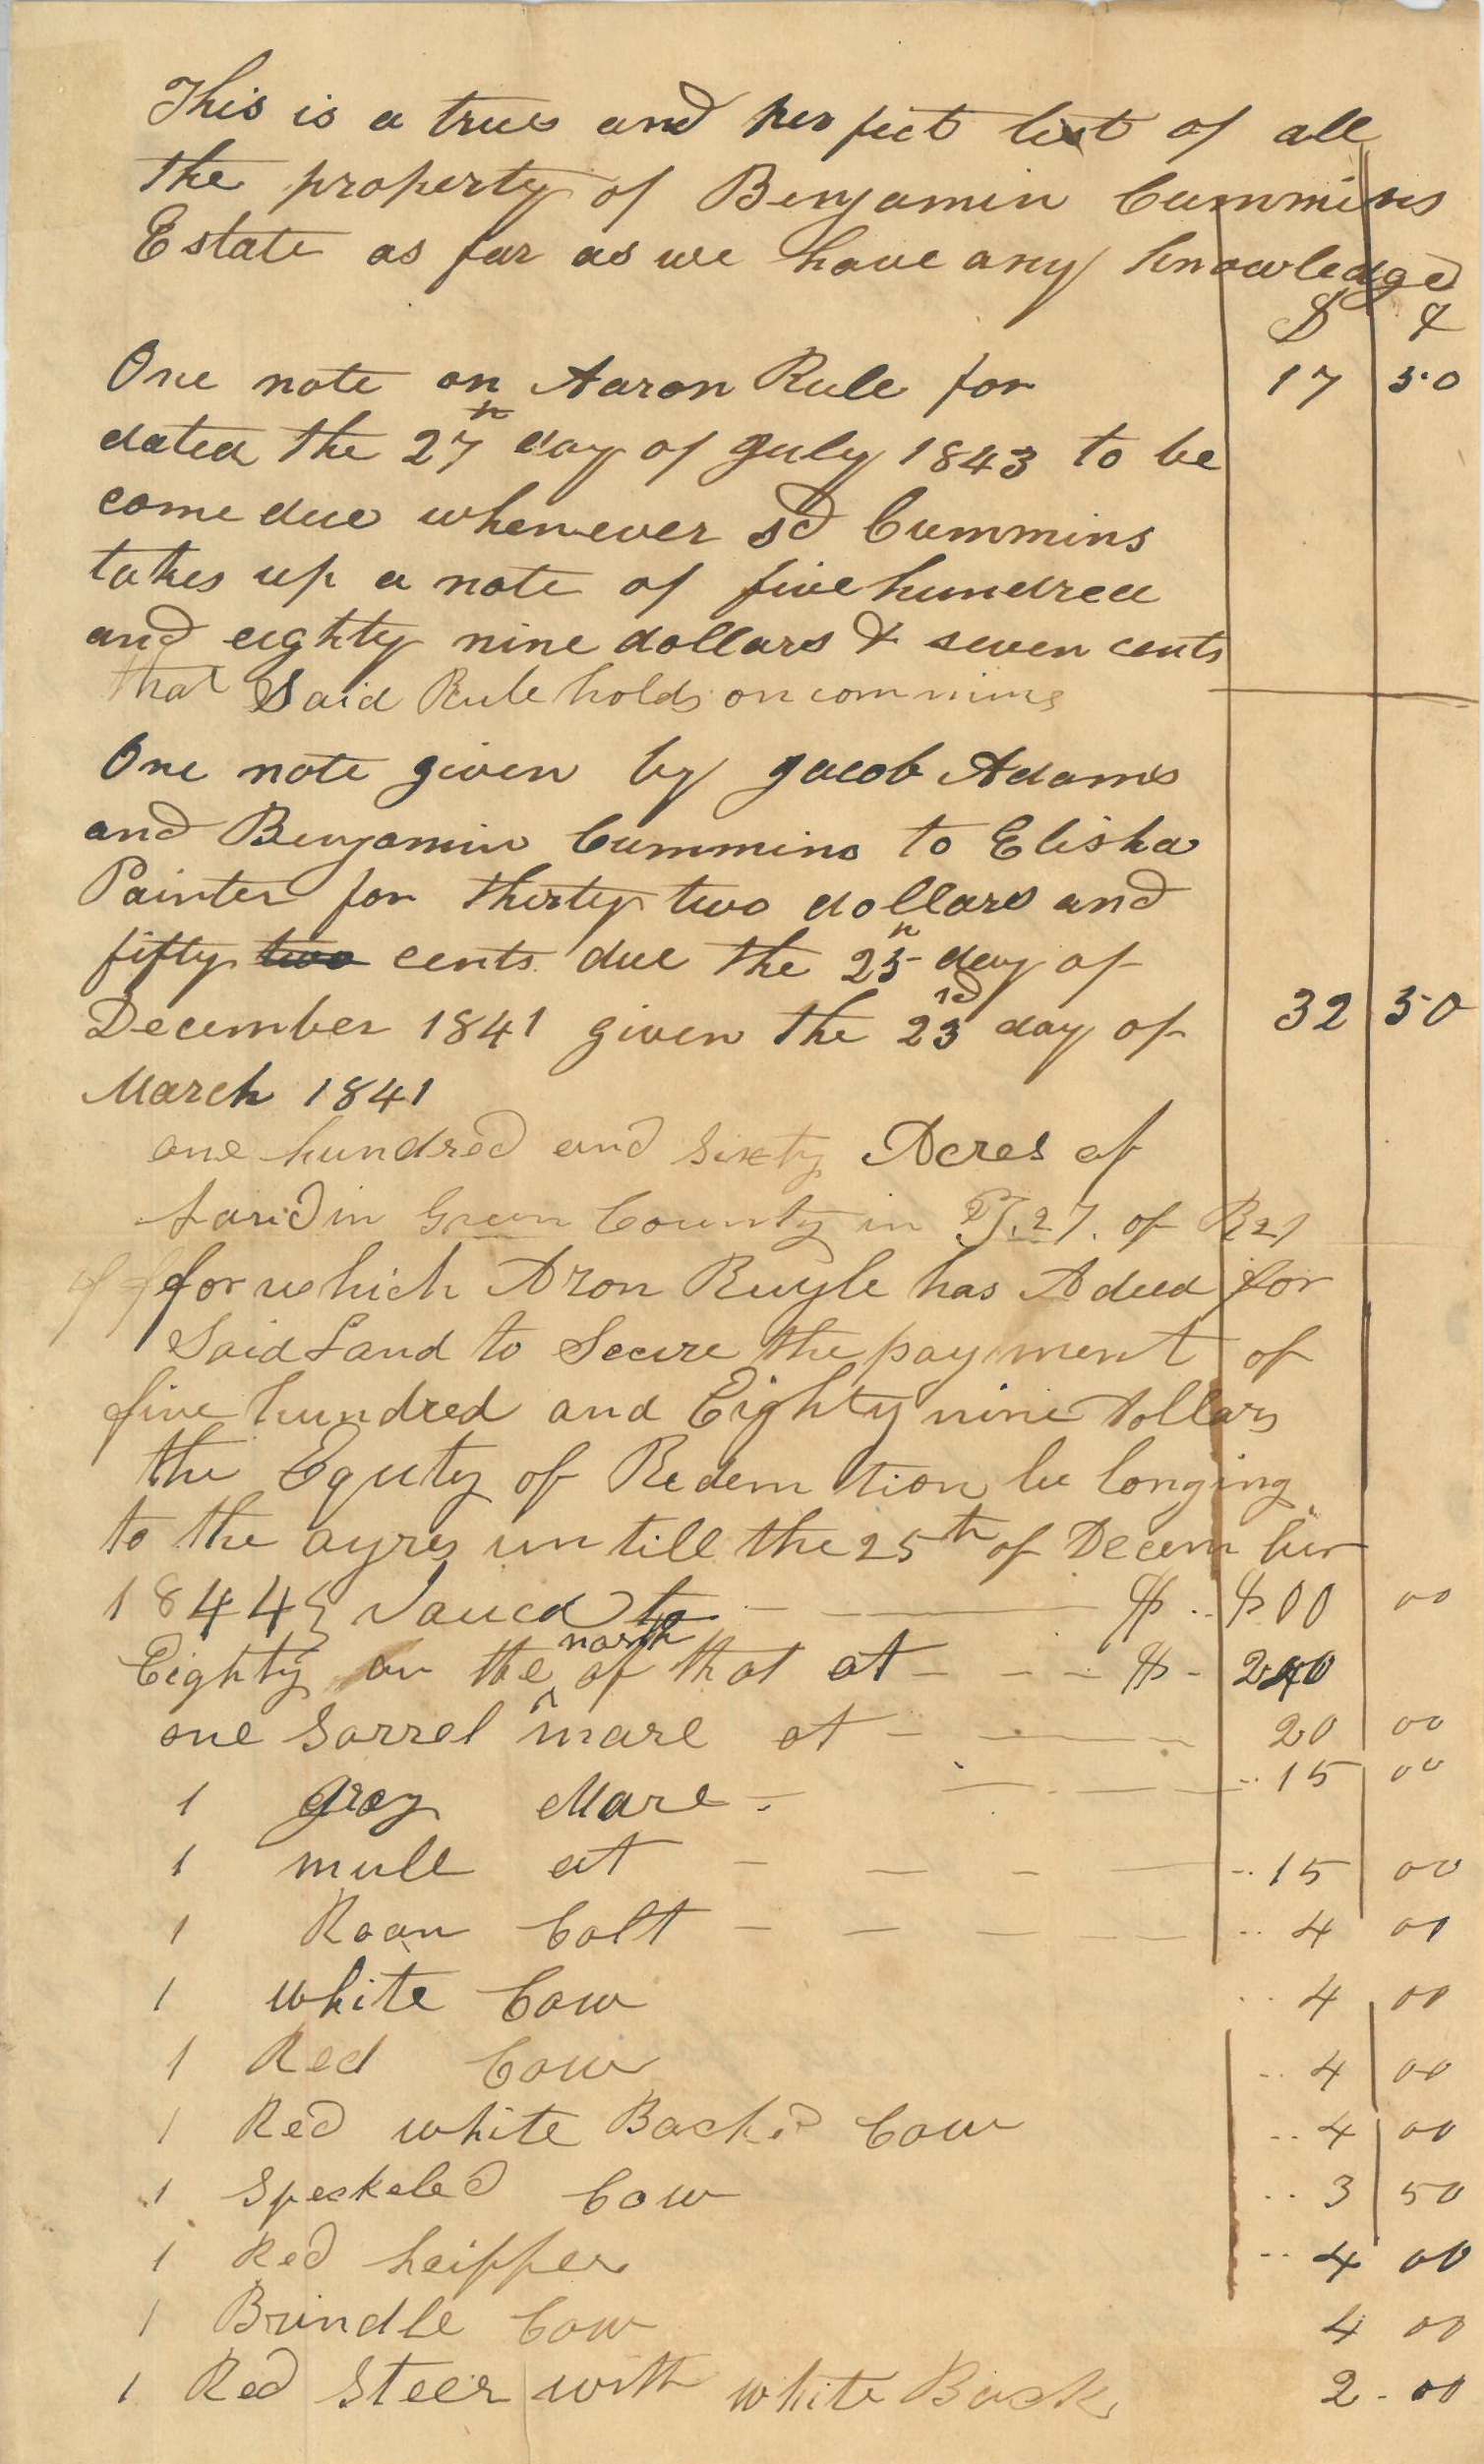 This is a true and perfect list of all
the property of Benjamin Cummins
Estate as far as we have any knowledge
$ ¢
One note on Aaron Rule for 17 50
dated the 27th day of July 1843 to be
come due whenever sd Cummins
takes up a note of five hundred
and eighty nine dollars & seven cents
that Said Rule holds on commins
One note given by Jacob Adams
and Benjamin Cummins to Elisha
Painter for thirty two dollars and
fifty two cents due the 25th day of
December 1841 given the 23rd day of 32 50
March 1841
one hundred and sixty Acres of
Land in Green County in T. 27. of R 21
for which Aron Ruyle has A deed for
Said Land to Secure the payment of
five hundred and Eighty nine Dollars
the Equity of Redemtion be longing
to the ayres un till the 25th of Decem ber
1844 to $ 00 00
Eighty on the north of that at $ 240
one Sorrel mare at 20 00
1 gray Mare 15 00
1 mule at 15 00
1 Roan Colt 4 00
1 white Cow 4 00
1 Red Cow 4 00
1 Red white Backd Cow 4 00
1 Speckeled Cow 3 50
1 Red heipfer 4 00
1 Brindle Cow 4 00
1 Red Steer with white Back 2 00